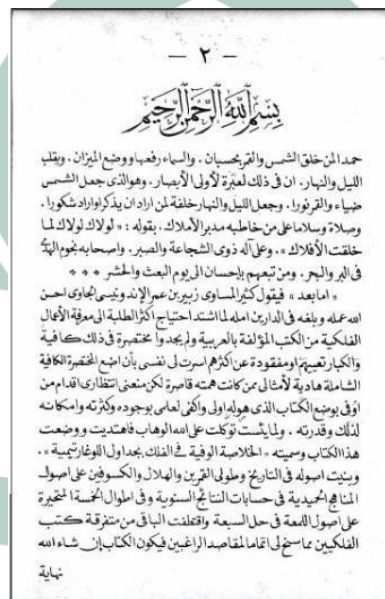 — ٢ —
بسم الله الرحمن الرحيم
حمدا لمن خلق الشمس والقمر بحسبان . والسماء رفعها ووضع الميزان . ويقلب
الليل والنهار . ان في ذلك لعبرة لأولى الأبصار . وهو الذى جعل الشمس
ضياء والقمر نورا . وجعل الليل والنهار خلفة لمن اراد ان يذكر او اراد شكورا .
وصلاة وسلاما على من خاطبه مدبر الأملاك . بقوله : « لولاك لولاك لما
خلقت الأفلاك » . وعلى آله ذوى الشجاعة والصبر . واصحابه نجوم الهدى
فى البر والبحر . ومن تبعهم بإحسان الى يوم البعث والحشر * * *
« اما بعد » فيقول كثير المساوى زبير بن عمر الإندونيسى الجاوى احسن
الله عمله وبلغه فى الدارين امله لما اشتد احتياج اكثر الطلبة الى معرفة الأعمال
الفلكية من الكتب المؤلفة بالعربية ولم يجدوا مختصرة فى ذلك كافية
والكبار تعييهم او مفقودة عن اكثرهم اسرت لى نفسى بأن اضع المختصرة الكافية
الشاملة هادية لأمثالى ممن كانت همته قاصرة لكن منعنى انتظارى اقدام من
اوفى بوضع الكتاب الذى هو له اولى واكفى لعلمى بوجوده وكثرته وامكانه
لذلك وقدرته . ولما يئست توكلت على الله الوهاب فاهتديت ووضعت
هذا الكتاب وسميته « الخلاصة الوفية فى الفلك بجداول اللوغارتمية » .
وبنيت اصوله فى التاريخ وطولى القمرين والهلال والكسوفين على اصول
المناهج الحميدية فى حسابات النتائج السنوية وفى اطوال الخمسة المتحيرة
على اصول اللمعة فى حل السبعة واقتطفت الباقى من متفرقة كتب
الفلكيين مما سنح لى اتماما لمقاصد الراغبين فيكون الكتاب إن شاء الله
نهاية